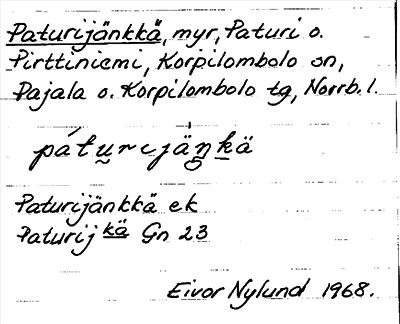 Paturijänkkä, myr, Paturi o.
Pirttiniemi, Korpilombolo sn,
Pajala o. Korpilombolo tg, Norrb. l.
páturijäŋkä
Paturijänkkä ek
Paturij kä Gn 23
Eivor Nylund 1968.